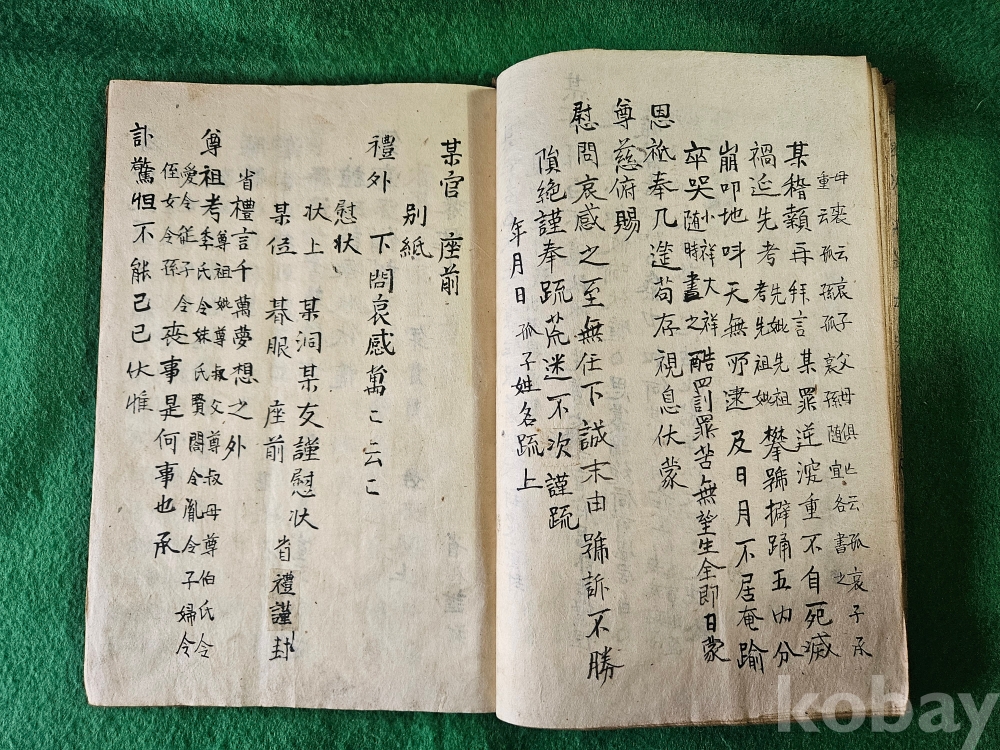 母喪云哀子父母俱亡云孤哀子承
重云孤孫哀孫隨宜各書之
某稽顙再拜言某罪逆深重不自死滅
禍延先考先妣先祖考先祖妣攀號擗踊五內分
崩叩地叫天無所逮及日月不居奄踰
卒哭小祥大祥隨時書之酷罰罪苦無望生全即日蒙
恩祗奉几筵苟存視息伏蒙
尊慈俯賜
慰問哀感之至無任下誠末由號訴不勝
隕絶謹奉疏荒迷不次謹疏
年月日孤子姓名疏上
某官座前
別紙
禮外下問哀感萬〻云〻
慰狀
狀上某洞某友謹慰狀
某位朞服座前省禮謹封
省禮言千萬夢想之外
尊祖考尊祖妣尊叔父尊叔母尊伯氏令
季氏令妹氏賢閤令胤令子婦令
愛令
侄女令孫令喪事是何事也承
訃驚怛不能已已伏惟
kobay